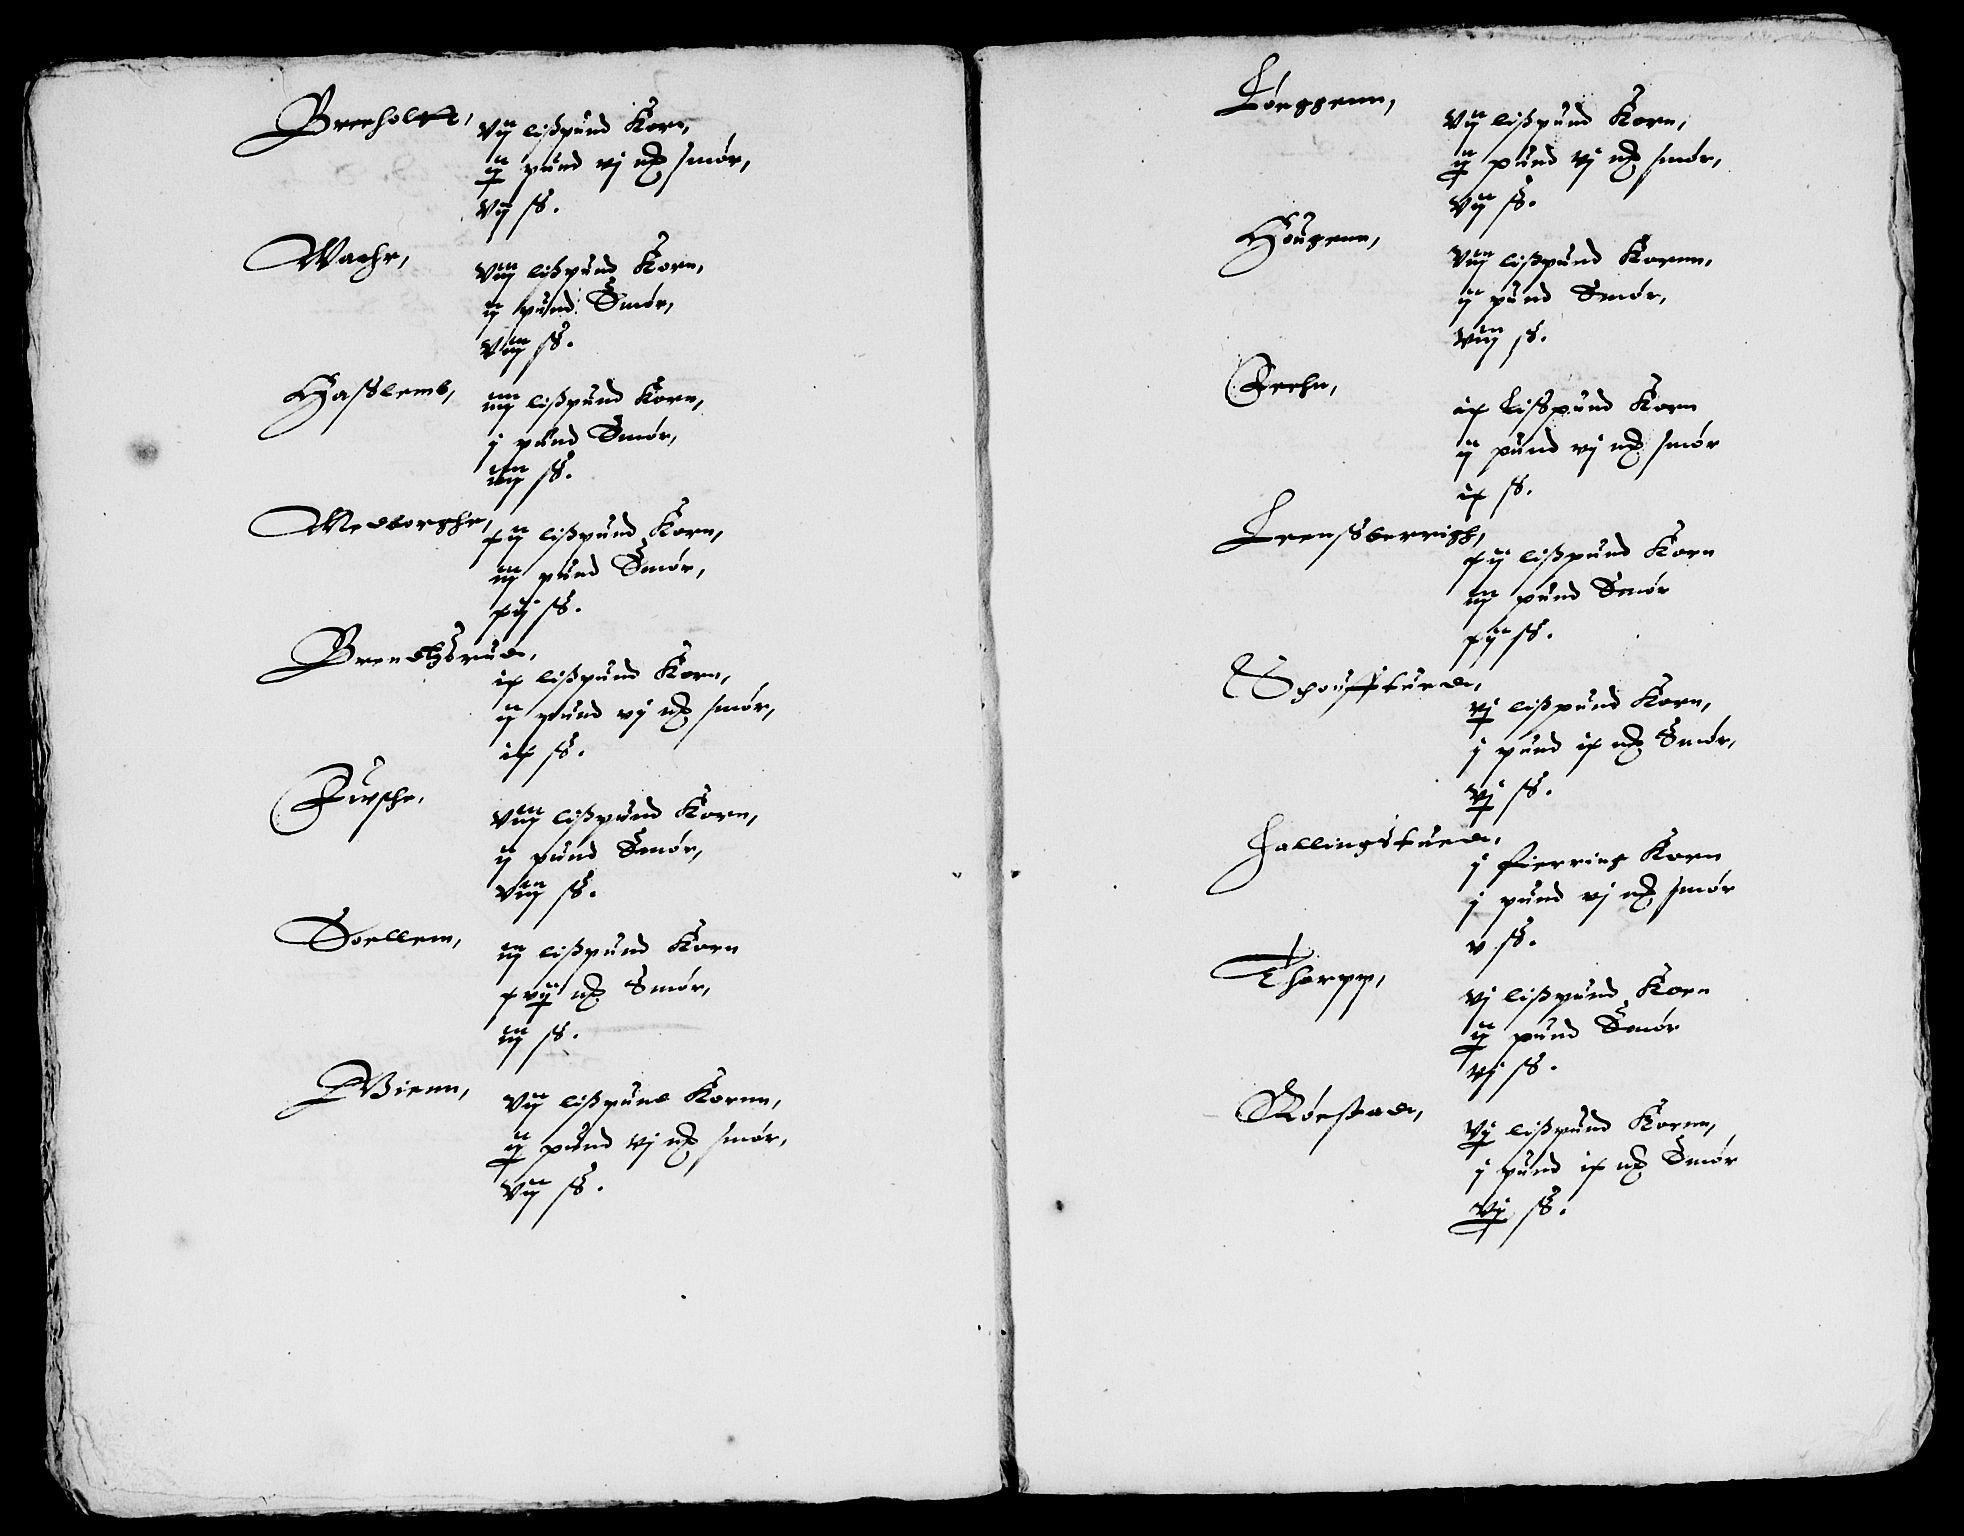 Breeholtt,
vij lißpund Korn,
ij pund vj mk smór,
vij ß.
Wachr,
viij lißpund Korn,
ij pund Smór,
viij ß.
Haßlemb,
iiij lißpund Korn,
j pund Smór,
iiij ß.
Medborghe,
xij lißpund Korn,
iij pund Smór,
xij ß.
Brendtzrud,
ix lißpund Korn,
ij pund vj mk smór,
ix ß.
viij lißpund Korn,
ij pund Smór,
viij ß.
Soellem,
iij lißpund Korn
xvij mk Smór,
iij ß.
Wienn,
vij lißpund Kornn,
ij pund vj mk smór,
vij ß.
Lóeggenn,
vij lißpund Korn,
ij pund vj mk smór,
vij ß.
Hougenn,
viij lißpund Kornn,
ij pund Smór,
viij ß.
ix Lißpund Korn
ij pund vj mk smór
ix ß.
Leenßberrigh,
xij lißpund Korn
iij pund Smór
xij ß.
Schoufftued,
vj lißpund Korn,
j pund ix mk Smór,
vj ß.
Hallingstued,
j fierring Korn
j pund vj mk smór
v ß.
Thorpp,
vj lißpund Korn
ij pund Smór
vj ß.
Róestadt,
vj lißpund Kornn,
j pund ix mk Smór
vj ß.